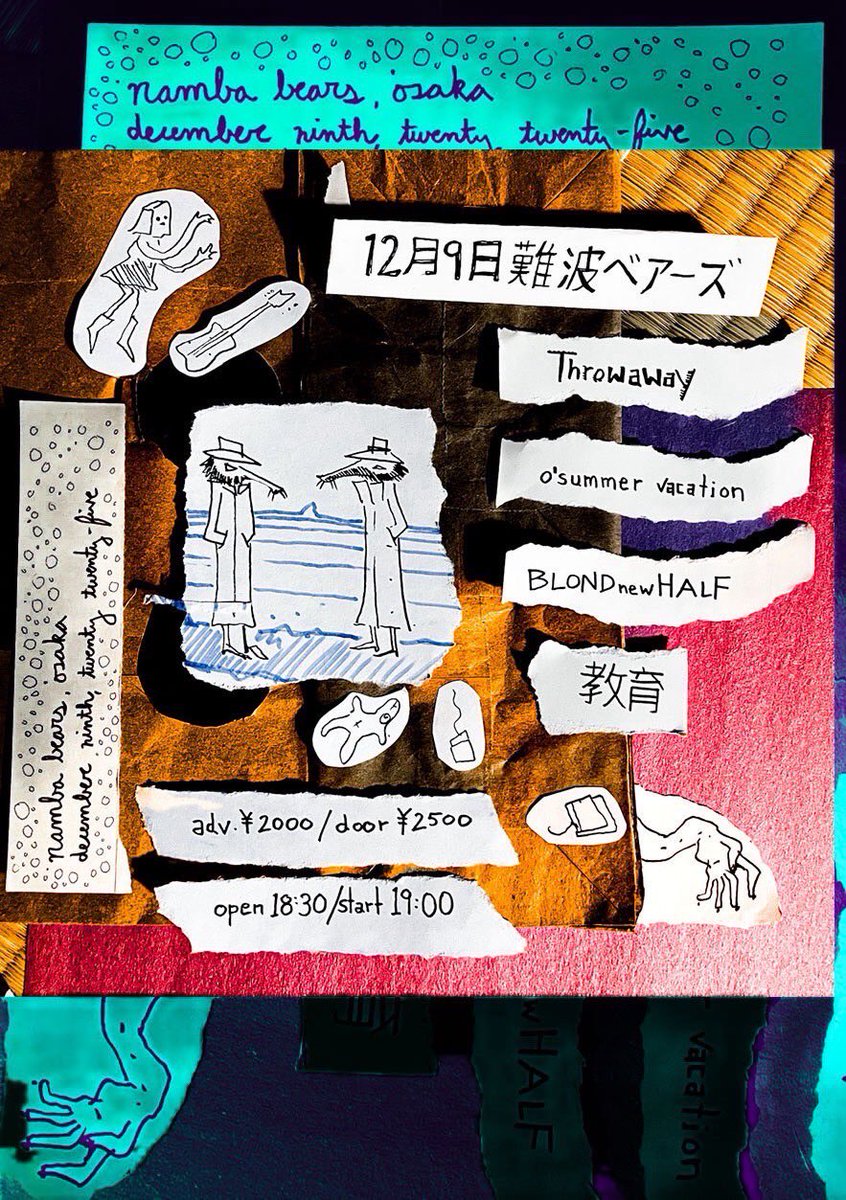 namba bears, osaka
december ninth, twenty twenty-five
12月9日難波ベアーズ
Throwaway
o'summer vacation
BLONDnewHALF
教育
namba bears, osaka
december ninth, twenty twenty-five
adv.¥2000/door¥2500
open 18:30/start 19:00
育
wHALF
vacation